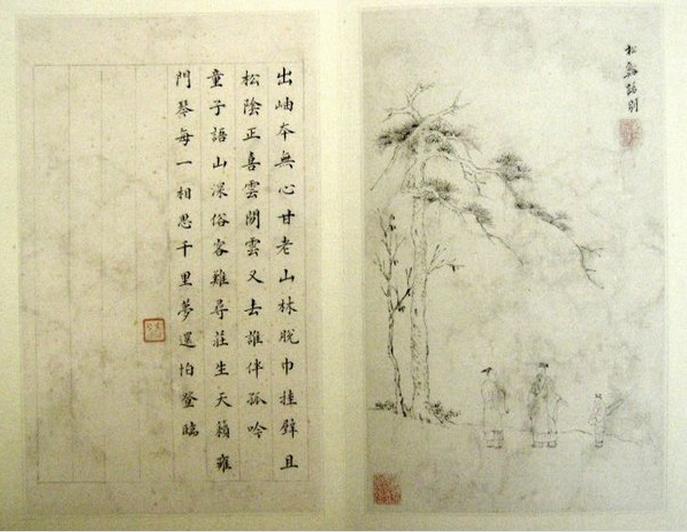 松壑話別
出岫夲無心甘老山林脫巾挂壁且
松陰正喜雲閒雲又去誰伴孤吟
童子語山深俗客難尋莊生天籟雍
門琴每一相思千里夢還怕登臨